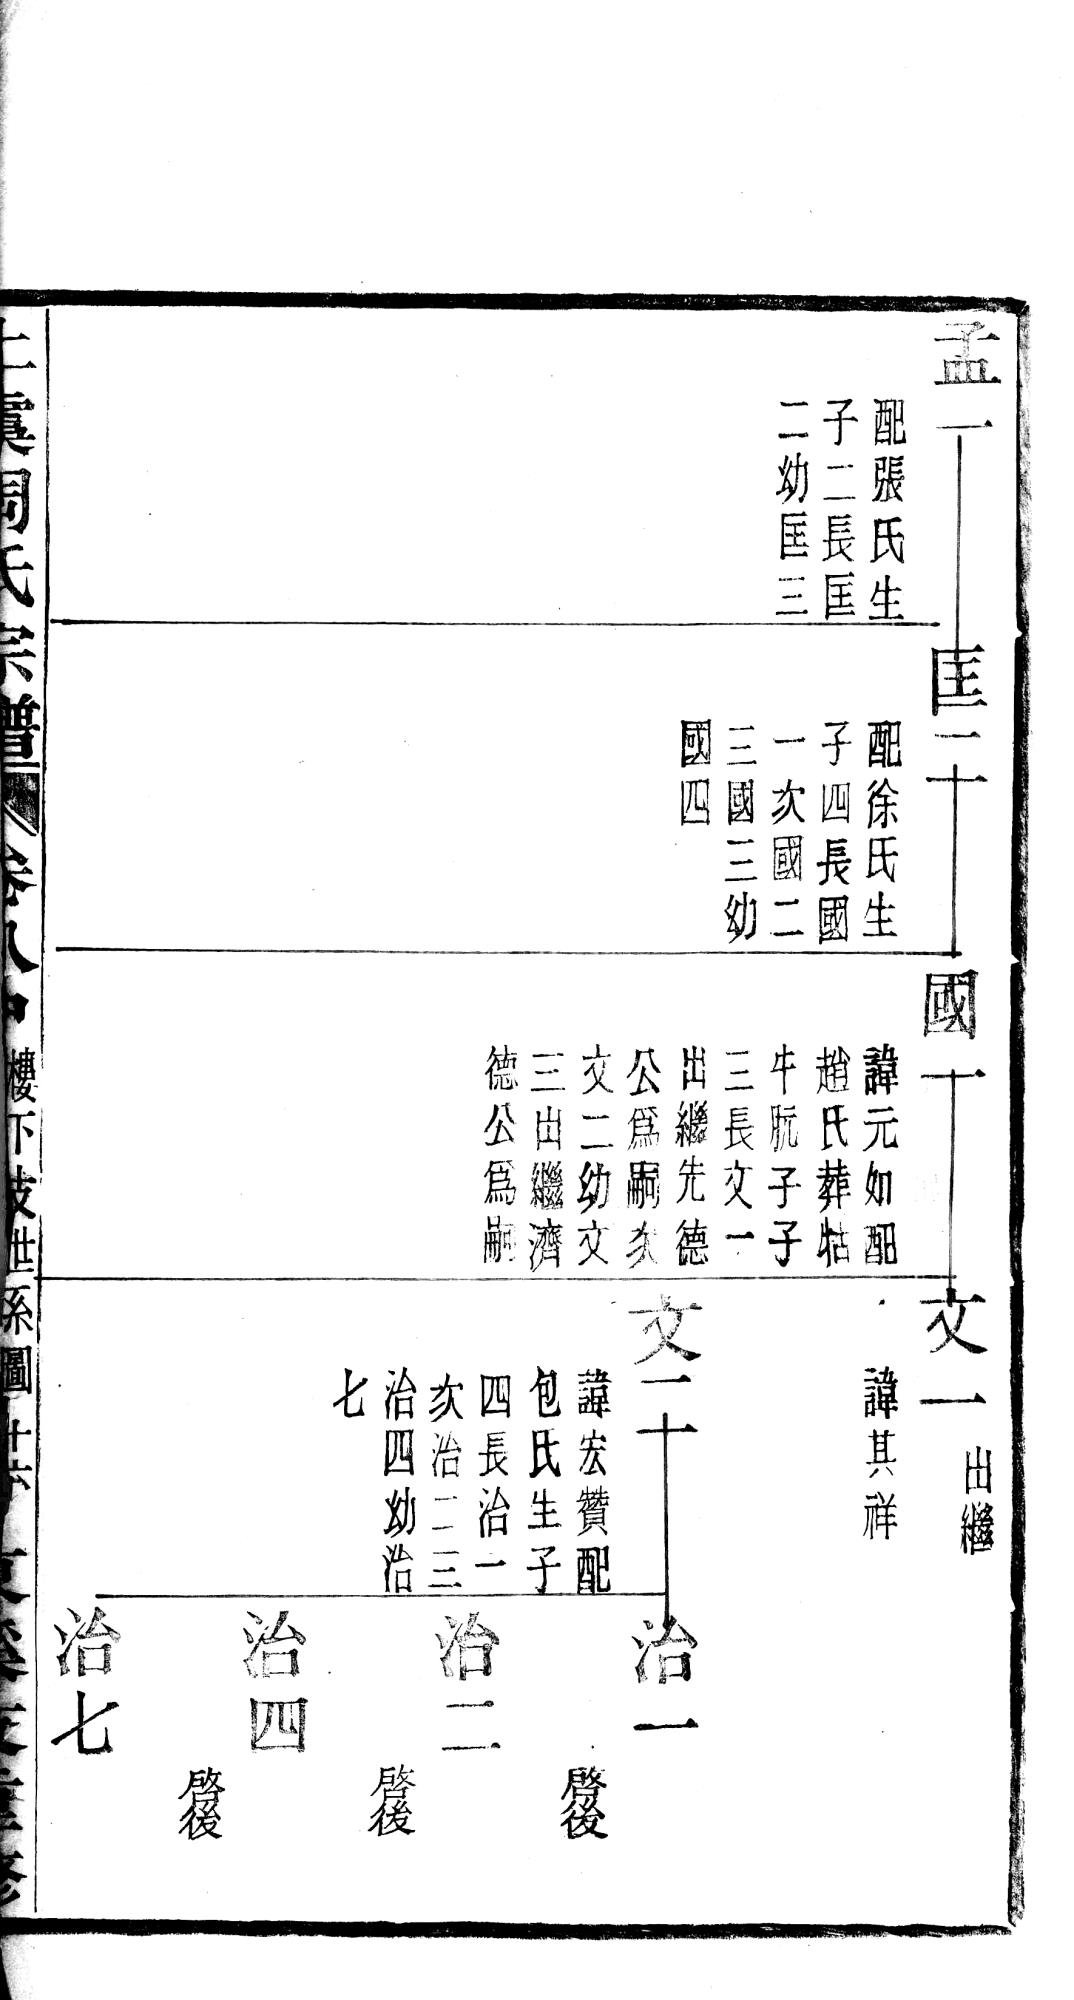 孟一
配張氏生
子二長匡
二幼匡三
匡二
配徐氏生
子四長國
一次國二
三國三幼
國四
國一
諱元如配
趙氏葬牯
牛朊子子
三長文一
出繼先德
公爲嗣次
文二幼文
三出繼濟
德公爲嗣
文一
出繼
諱其祥
文二
諱宏贊配
包氏生子
四長治一
次治二三
治四幼治
七
治一
啓後
治二
啓後
治四
啓後
治七
上虞桐氏宗譜 卷八中 樓下支世系圖
重修